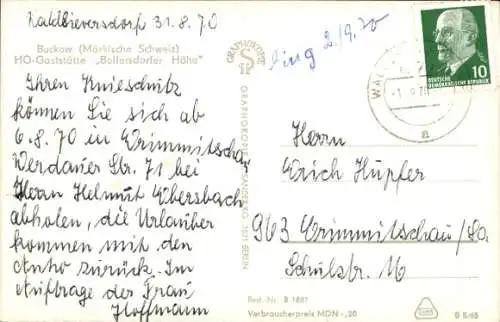 Waldsieversdorf 31.8.70
Buckow (Märkische Schweiz)
HO-Gaststätte „Bollersdorfer Höhe"
Ihren Knieschutz
können Sie sich ab
6.8.70 in Crimmitschau
Werdauer Str. 71 bei
Herrn Helmut Ebersbach
abholen, die Urlauber
kommen mit den
Auto zurück. Im
Auftrage der Frau
Hoffmann
GRAPHOKOPIE
1071 BERLIN
Eing 2.9.70
10
DEUTSCHE
DEMOKRATISCHE REPUBLIK
a
Herrn
Erich Hupfer
963 Crimmitschau/Sa.
Schulstr. 16
Best.-Nr. B 1887
Verbraucherpreis MDN -,20